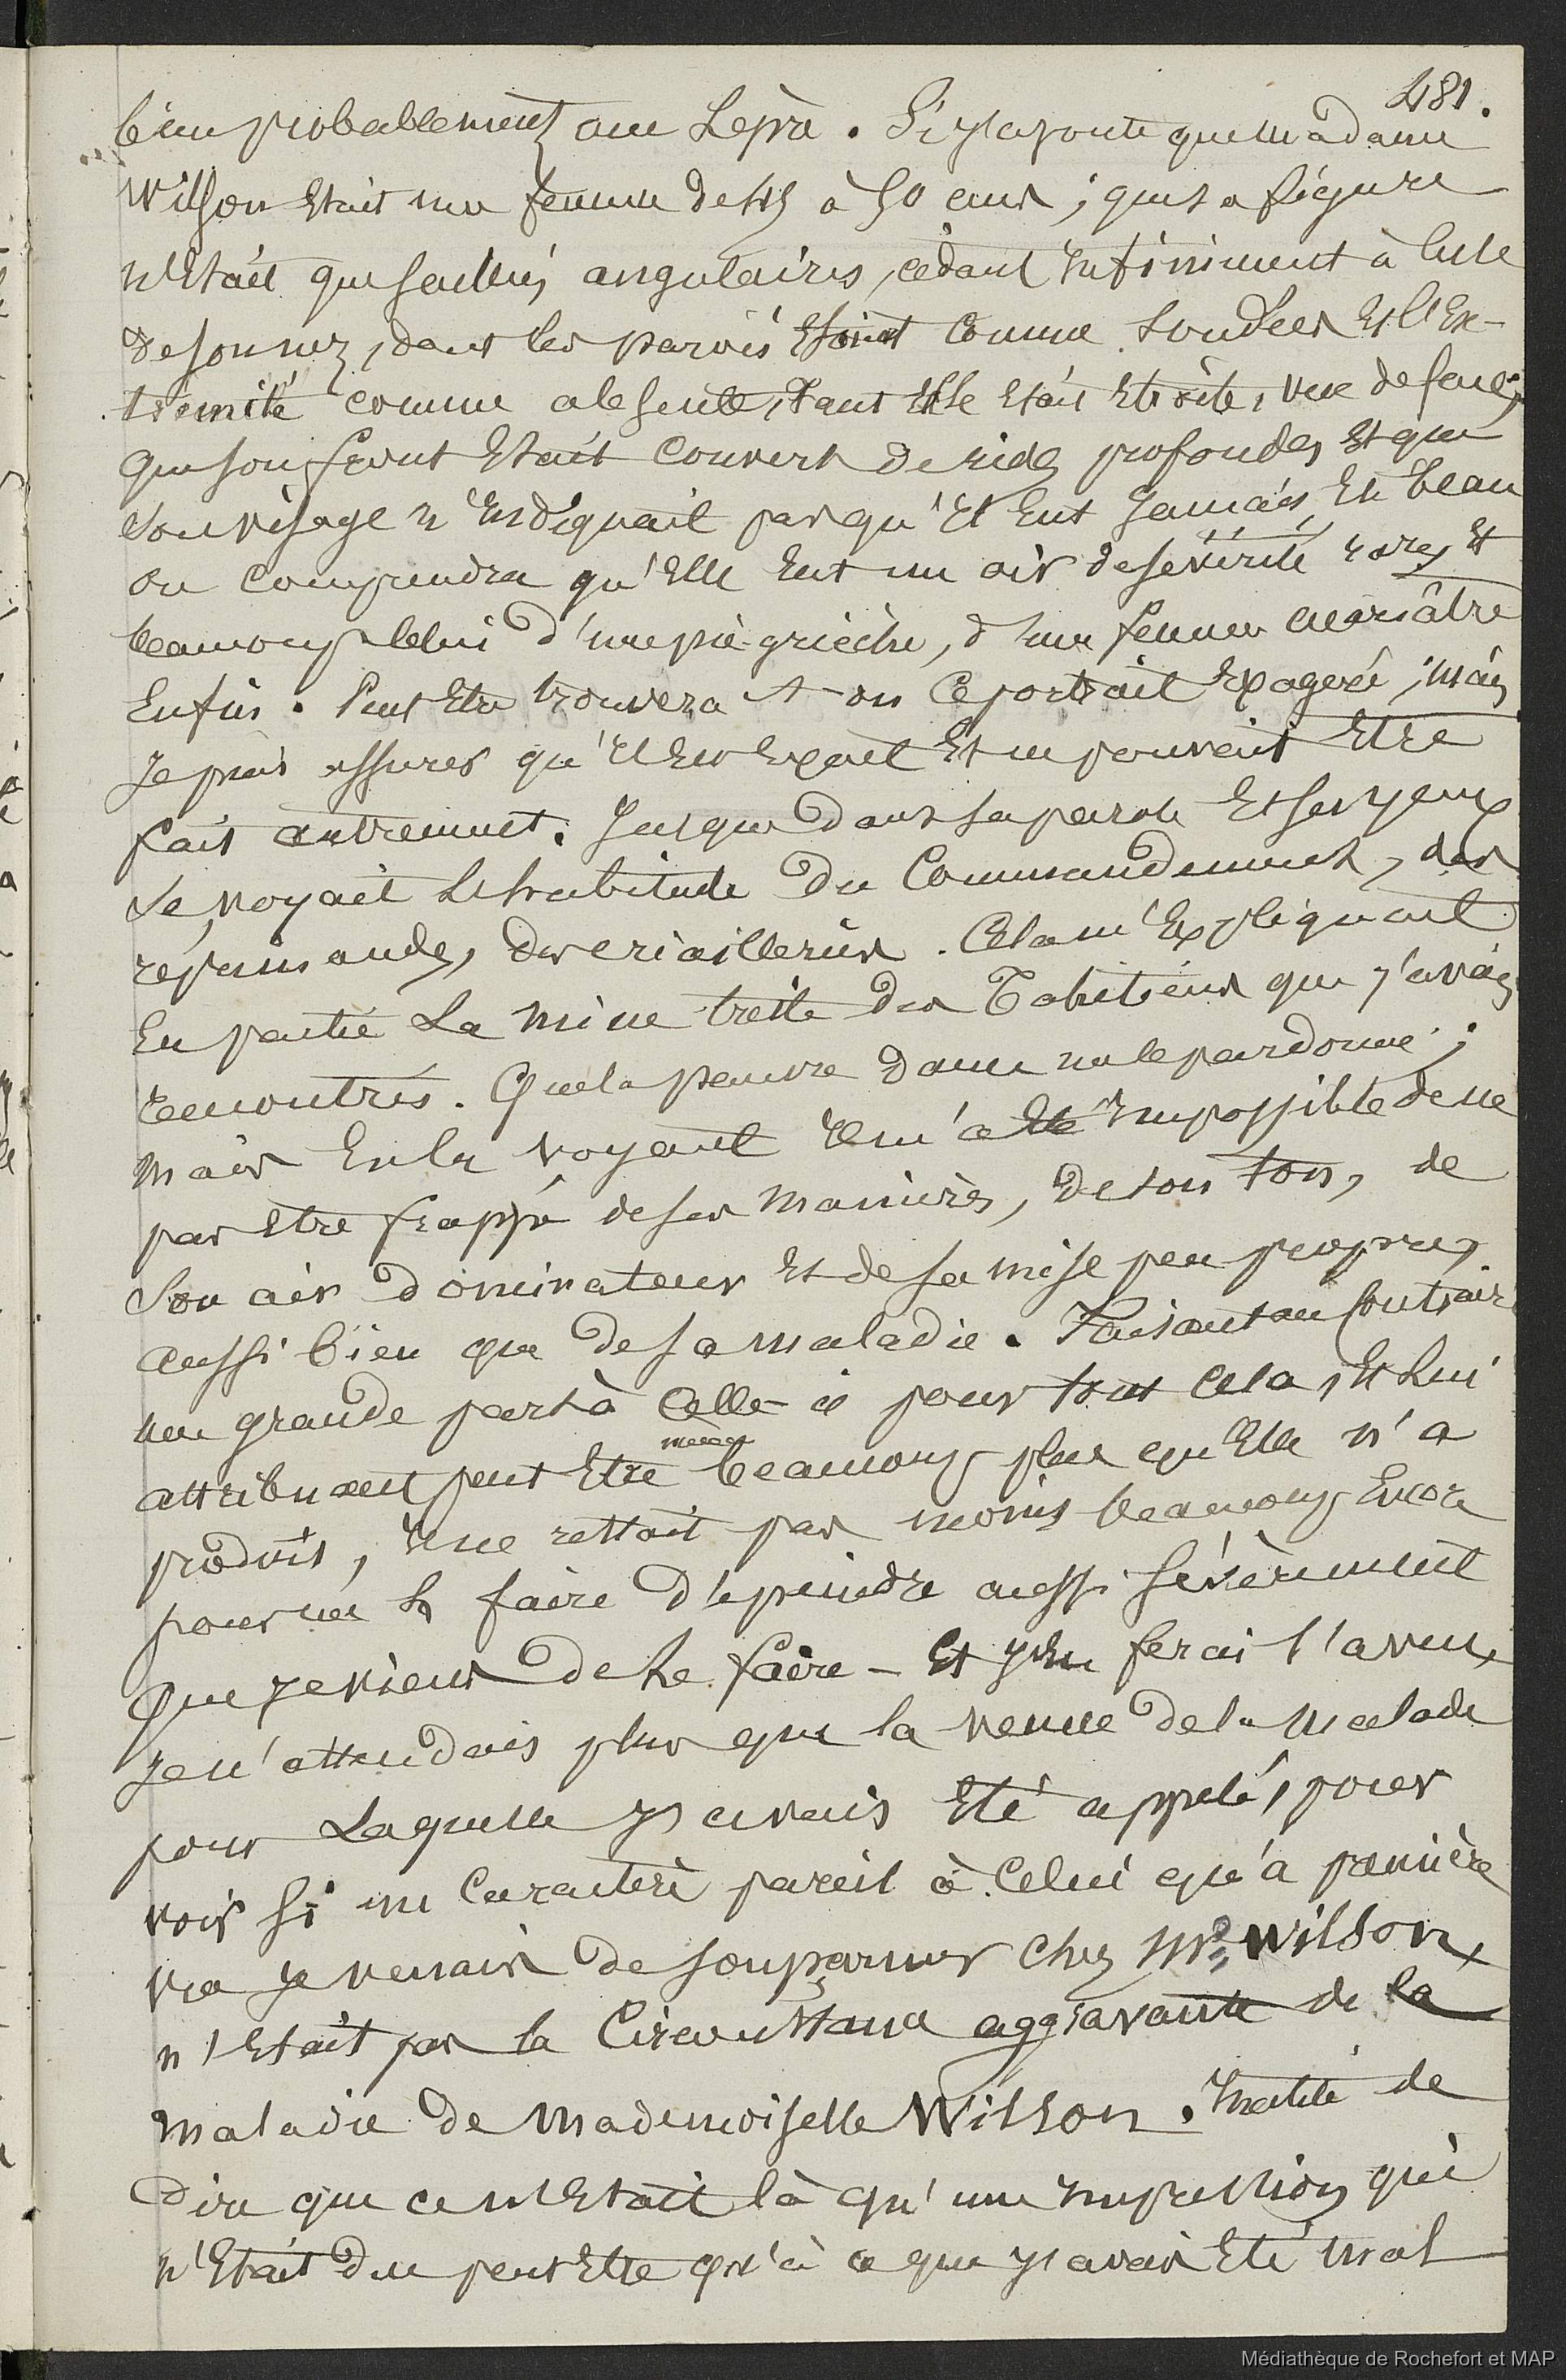 481.
bien probablement une Lépra. Si j'ajoute que Madame
Wilson Etait une femme de 45 à 50 ans ; que sa figure
n'Etait que saillies angulaires, cédant infiniment à celle
de son nez, dont les parois Etaient Comme Soudées Et l'Ex-
trémité comme absente, tant Elle Etait Etroite, vue de face ;
que son front Etait Couvert de rides profondes Et que
Son visage n'Indiquait pas qu'Il Eut Jamais Eté beau
On Comprendra qu'Elle Eut un air de sévérité rare, Et
beaucoup celui d'une pie-grièche, d'une femme acariâtre
Enfin. Peut Etre trouvera-t-on Ce portrait Exagéré ; mais
Je puis assurer qu'Il Est Exact Et ne pouvait Etre
fait autrement. Jusque dans sa parole Et ses yeux
Se voyait L'habitude du Commandement, des
réprimandes, des criailleries. Cela m'Expliquait
En partie La mine triste des Tahitiens que j'avais
rencontrés. Que la pauvre dame me le pardonne ;
mais En la voyant Il m'a Eté Impossible de ne
pas Etre frappé de ses manières, de son ton, de
Son air dominateur Et de sa mise peu propre,
aussi bien que de sa maladie. Faisant au Contraire
une grande part à Celle-ci pour tout Cela, Et Lui
attribuant peut Etre même beaucoup plus qu'Elle n'a
produit, Il ne restait pas moins beaucoup Encore
pour me la faire dépeindre aussi Sévèrement
Que je viens de Le faire – Et j'En ferai l'aveu,
je n'attendais plus que la venue de la Malade
pour Laquelle j'avais Eté appelé, pour
voir Si un Caractère pareil à Celui qu'à première
vue Je venais de soupçonner chez Me Wilson,
n'Etait pas la Circonstance aggravante de la
maladie de Mademoiselle Wilson. Inutile de
Dire que ce n'Etait là qu'une Impression qui
n'Etait due peut Etre qu'à ce que j'avais Eté mal
Médiathèque de Rochefort et MAP